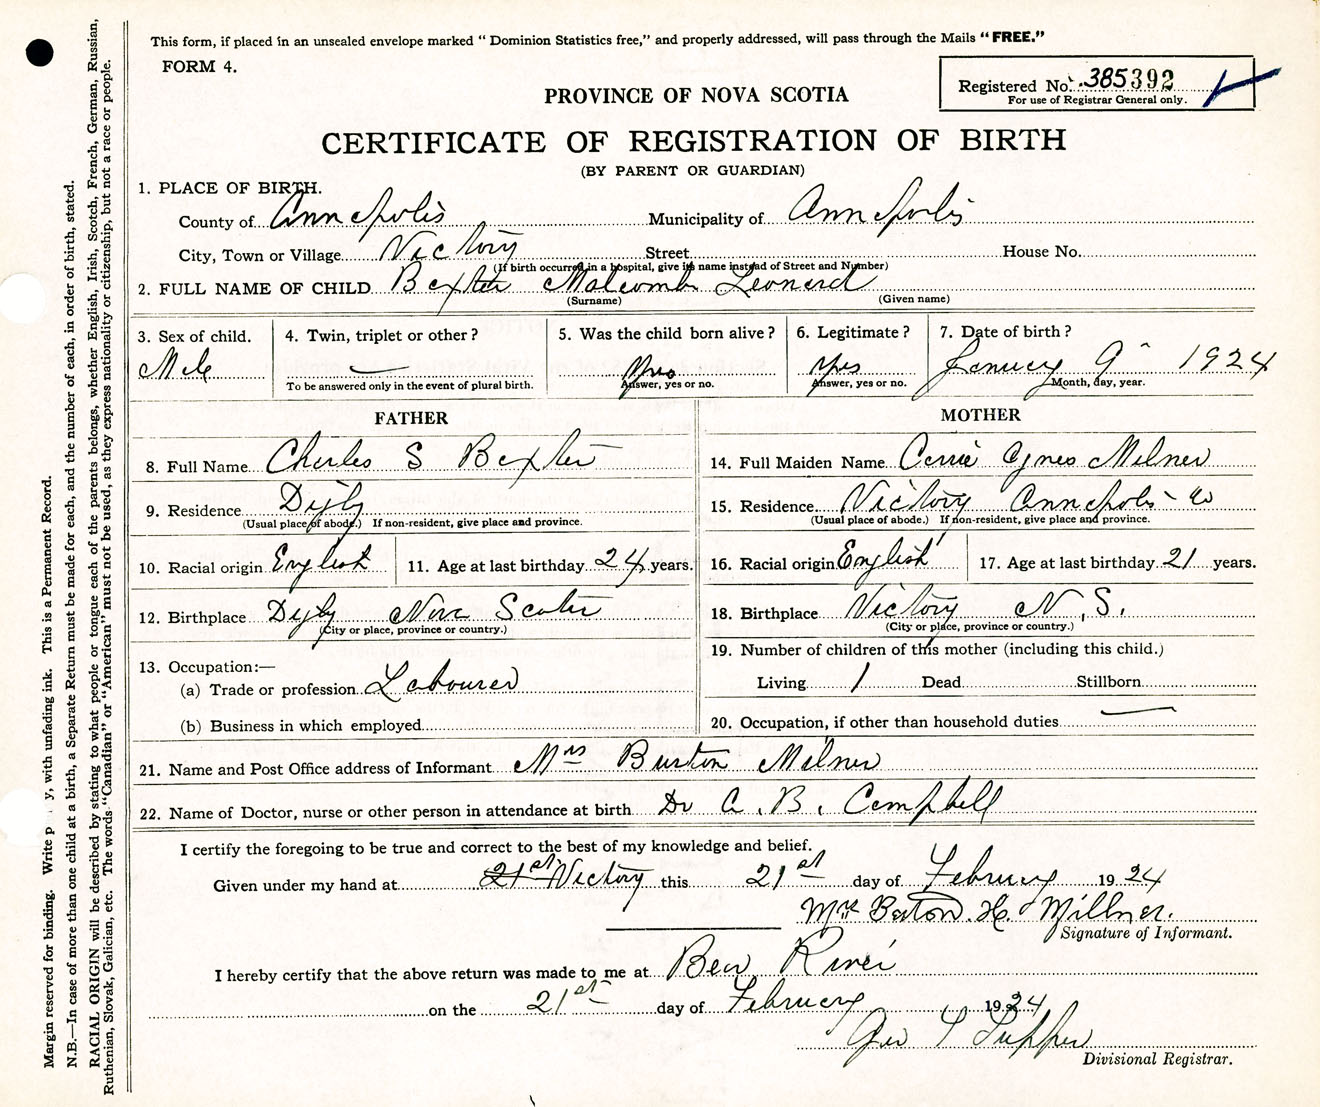 This form, if placed in an unsealed envelope marked "Dominion Statistics free," and properly addressed, will pass through the Mails "FREE."
FORM 4.
Registered No. 385392
For use of Registrar General only.
PROVINCE OF NOVA SCOTIA
CERTIFICATE OF REGISTRATION OF BIRTH
(BY PARENT OR GUARDIAN)
1. PLACE OF BIRTH.
County of Annapolis Municipality of Annapolis
City, Town or Village Victory Street House No.
(If birth occurred in a hospital, give its name instead of Street and Number)
2. FULL NAME OF CHILD Baxter Malcomb Leonard
(Surname) (Given name)
3. Sex of child. Male
4. Twin, triplet or other? —
To be answered only in the event of plural birth.
5. Was the child born alive? Yes
Answer, yes or no.
6. Legitimate? Yes
Answer, yes or no.
7. Date of birth? January 9" 1924
Month, day, year.
FATHER
8. Full Name Charles S Baxter
9. Residence Digby
(Usual place of abode.) If non-resident, give place and province.
10. Racial origin English 11. Age at last birthday 24 years.
12. Birthplace Digby Nova Scotia
(City or place, province or country.)
13. Occupation:—
(a) Trade or profession Labourer
(b) Business in which employed
MOTHER
14. Full Maiden Name Carrie Agnes Milner
15. Residence Victory Annapolis Co
(Usual place of abode.) If non-resident, give place and province.
16. Racial origin English 17. Age at last birthday 21 years.
18. Birthplace Victory N.S.
(City or place, province or country.)
19. Number of children of this mother (including this child.)
Living 1 Dead Stillborn
20. Occupation, if other than household duties —
21. Name and Post Office address of Informant Mrs Burton Milner
22. Name of Doctor, nurse or other person in attendance at birth Dr A. B. Campbell
I certify the foregoing to be true and correct to the best of my knowledge and belief.
Given under my hand at 21st Victory this 21st day of February 1924
Mrs Burton. H. Millner.
Signature of Informant.
I hereby certify that the above return was made to me at Bear River
on the 21st day of February 1924
Geo T Tupper
Divisional Registrar.
Margin reserved for binding. Write p y, with unfading ink. This is a Permanent Record.
N.B.—In case of more than one child at a birth, a Separate Return must be made for each, and the number of each, in order of birth, stated.
RACIAL ORIGIN will be described by stating to what people or tongue each of the parents belongs, whether English, Irish, Scotch, French, German, Russian,
Ruthenian, Slovak, Galician, etc. The words "Canadian" or "American" must not be used, as they express nationality or citizenship, but not a race or people.